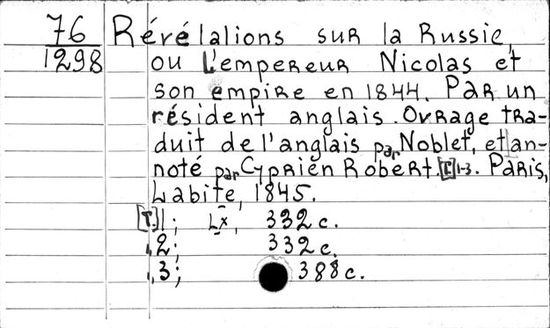 76 Révélations sur la Russie,
1298 ou L'empereur Nicolas et
son empire en 1844. Par un
résident anglais. Ovrage tra-
duit de l'anglais par Noblet, et an-
noté par Cyprien Robert. [T.] 1-3. Paris,
Labite, 1845.
[T.] 1; LX, 332 c.
2; 332 c.
3; 388 c.